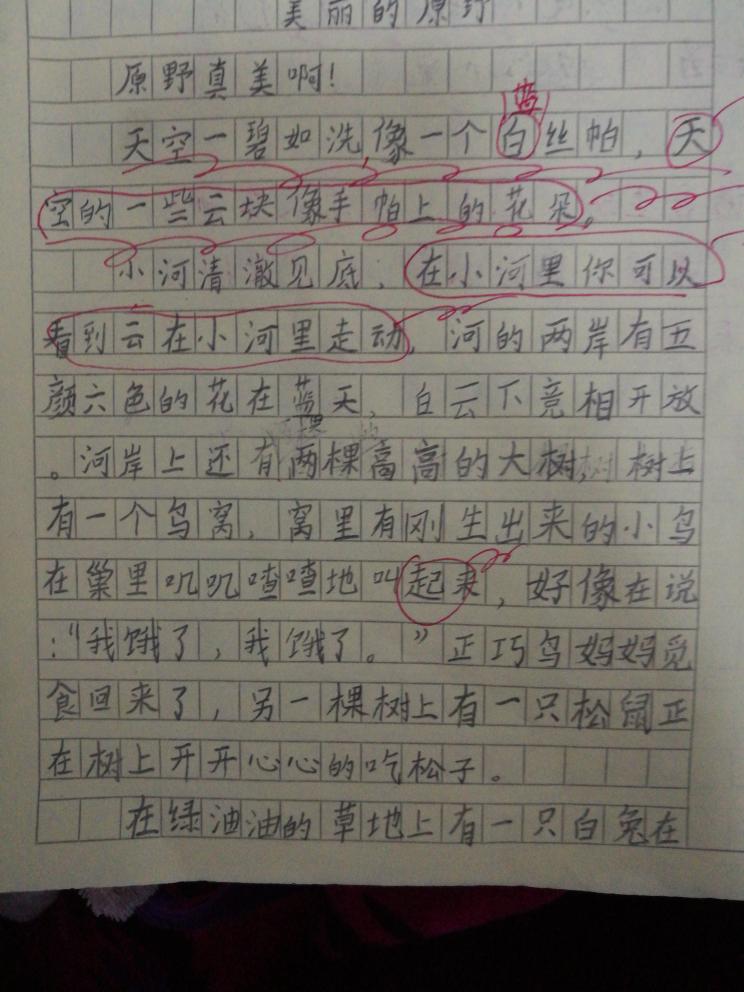 美丽的原野
原野真美啊！
蓝
天空一碧如洗，像一个白丝帕，天
空的一些云块像手帕上的花朵。
小河清澈见底，在小河里你可以
看到云在小河里走动，河的两岸有五
颜六色的花在蓝天，白云下竞相开放
。河岸上还有两棵高高的大树，树上
有一个鸟窝，窝里有刚生出来的小鸟
在巢里叽叽喳喳地叫起来，好像在说
：“我饿了，我饿了。”正巧鸟妈妈觅
食回来了，另一棵树上有一只松鼠正
在树上开开心心的吃松子。
在绿油油的草地上有一只白兔在